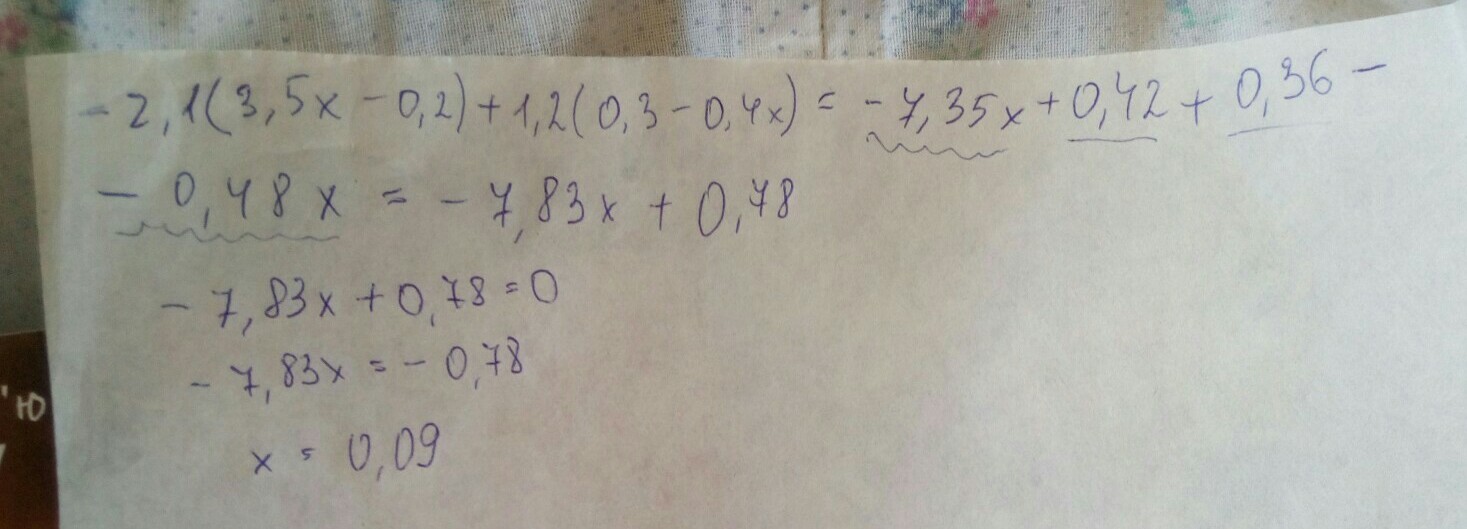 -2,1(3,5x-0,2)+1,2(0,3-0,4x) = -7,35x+0,42+0,36-
-0,48x = -7,83x+0,78
-7,83x+0,78=0
-7,83x=-0,78
x=0,09
'Ю